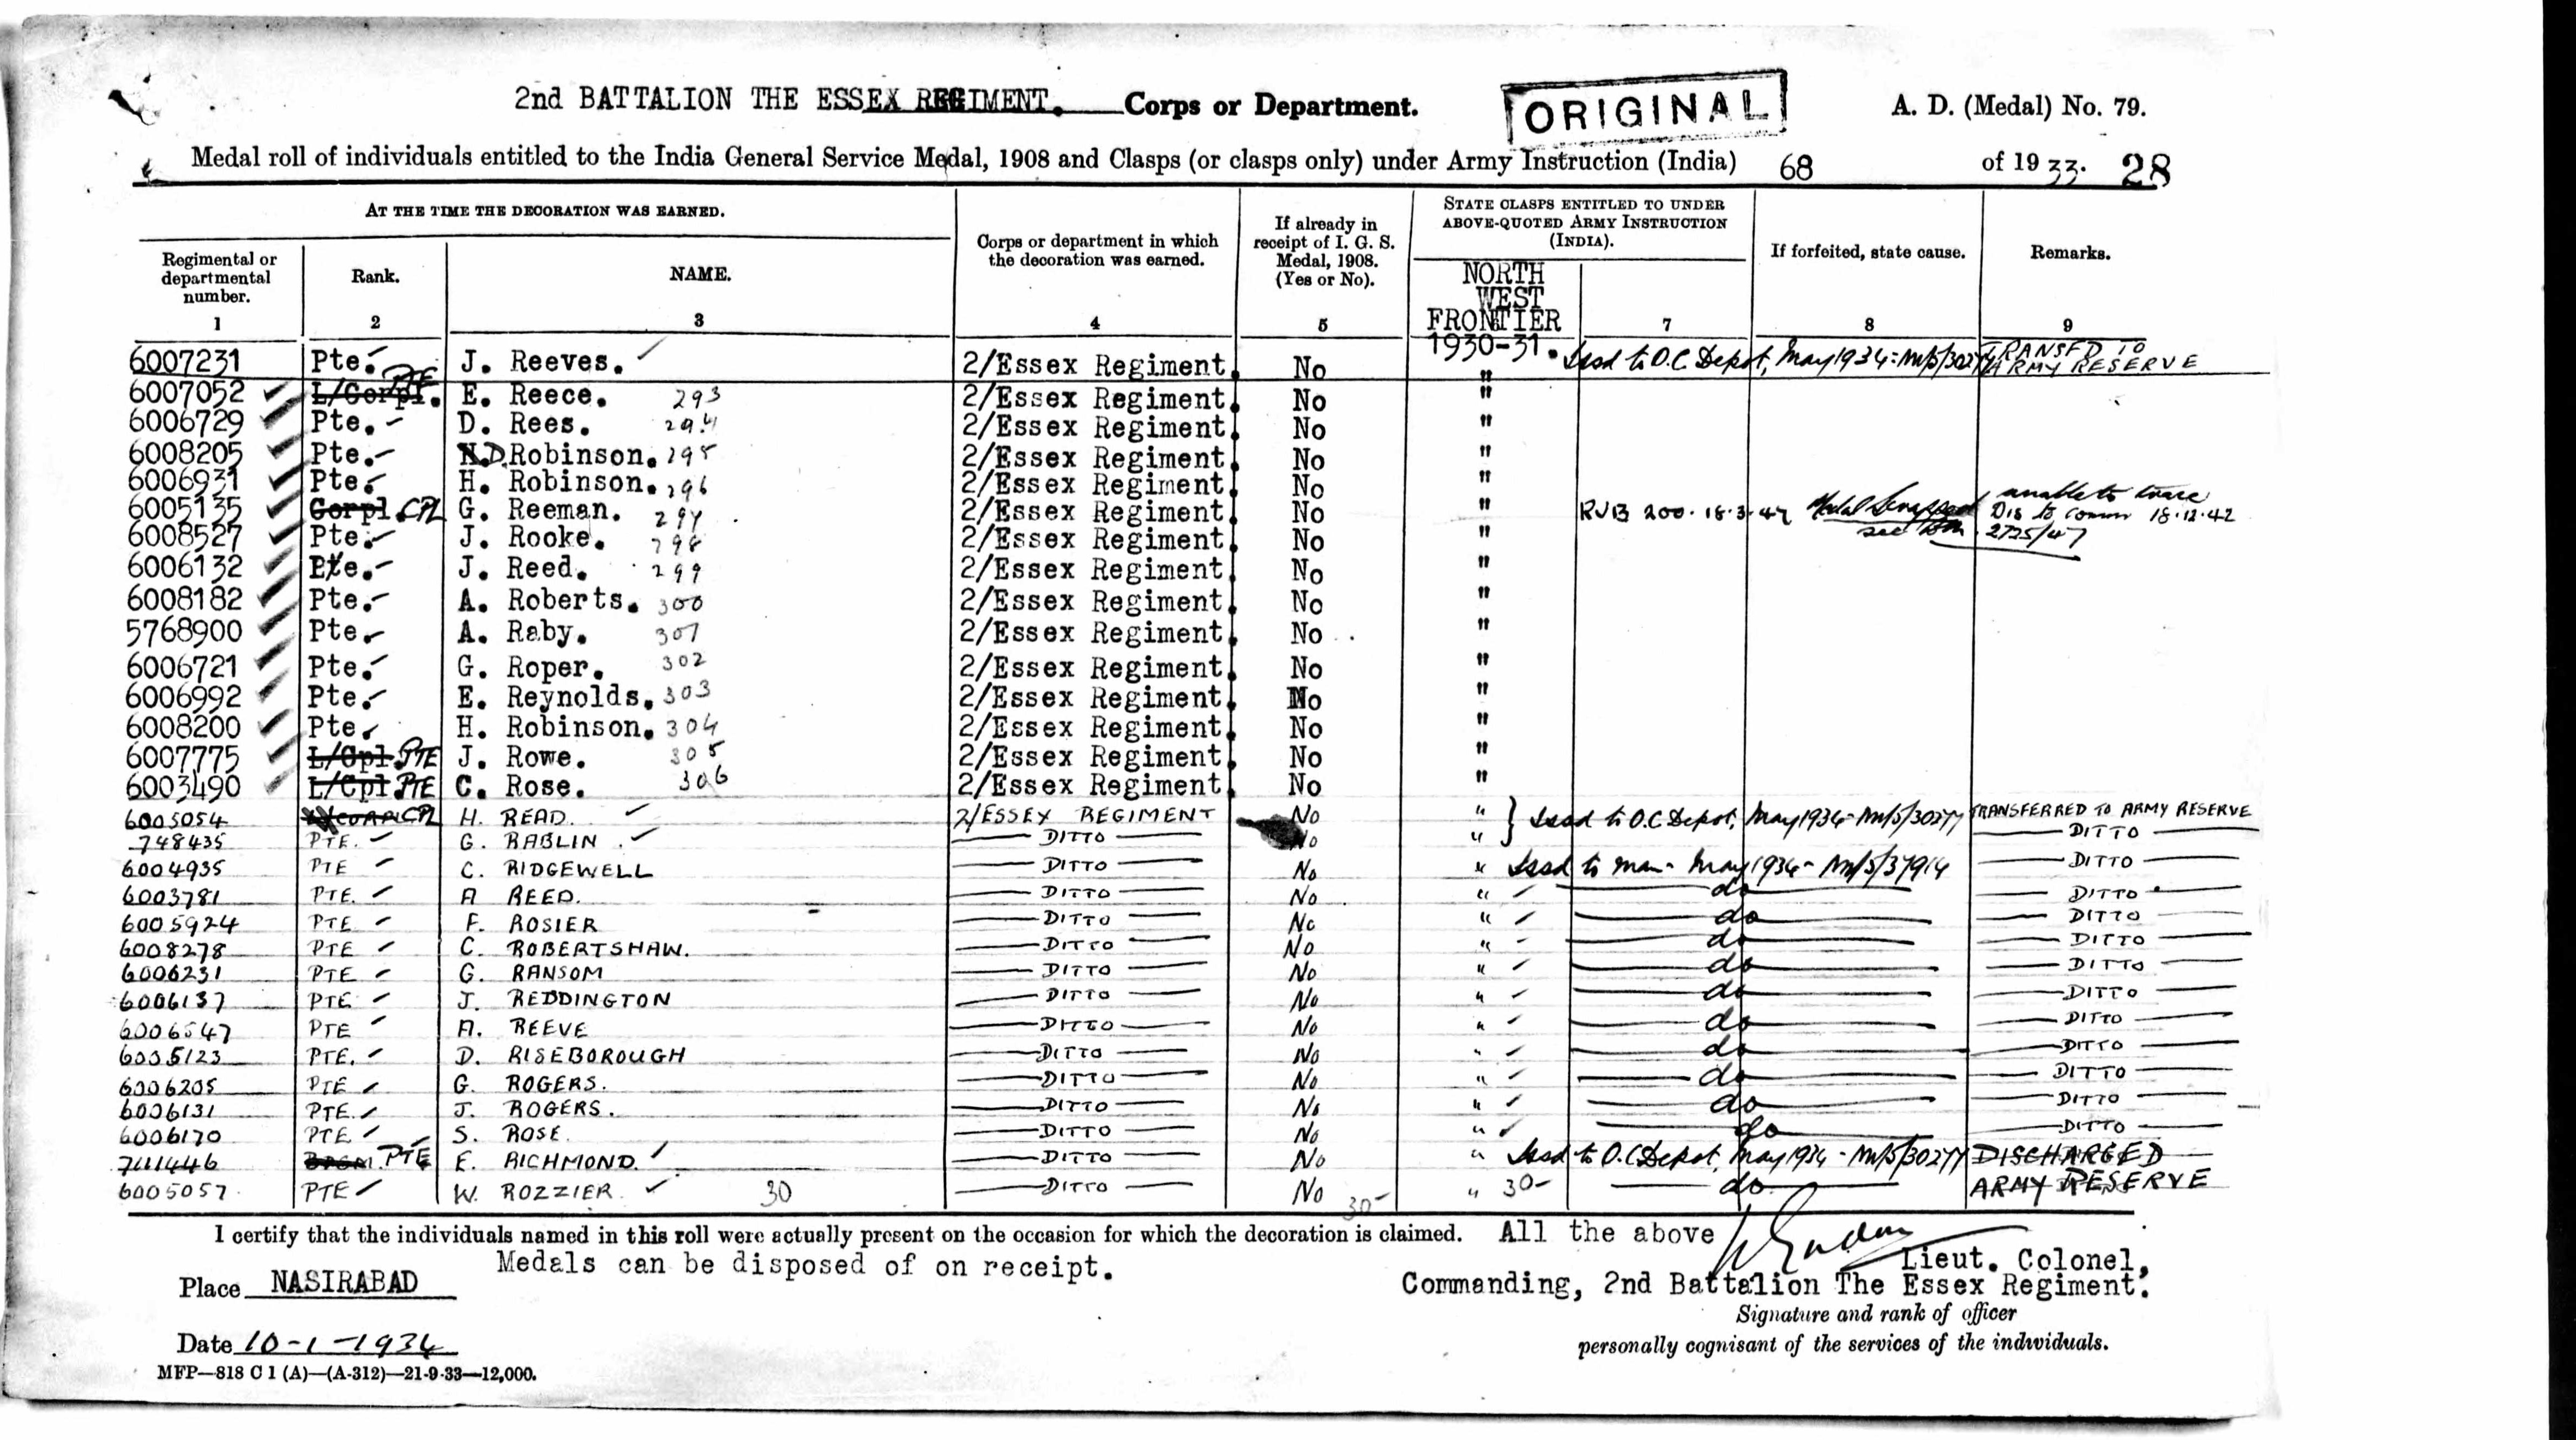 2nd BATTALION THE ESSEX REGIMENT. Corps or Department. ORIGINAL A. D. (Medal) No. 79.
Medal roll of individuals entitled to the India General Service Medal, 1908 and Clasps (or clasps only) under Army Instruction (India) 68 of 1933. 28
AT THE TIME THE DECORATION WAS EARNED.
Regimental or departmental number.
1
Rank.
2
NAME.
3
Corps or department in which the decoration was earned.
4
If already in receipt of I. G. S. Medal, 1908. (Yes or No).
5
STATE CLASPS ENTITLED TO UNDER ABOVE-QUOTED ARMY INSTRUCTION (INDIA).
NORTH WEST FRONTIER 1930-31.
7
If forfeited, state cause.
8
Remarks.
9
6007231 Pte. J. Reeves. 2/Essex Regiment. No " Issd to O.C Depot, May 1934 = TRANSFD TO ARMY RESERVE
6007052 L/Corpl. PTE E. Reece. 293 2/Essex Regiment. No "
6006729 Pte. D. Rees. 294 2/Essex Regiment. No "
6008205 Pte. D. Robinson. 295 2/Essex Regiment. No "
6006931 Pte. H. Robinson. 296 2/Essex Regiment. No "
6005135 Corpl. CPL G. Reeman. 297 2/Essex Regiment. No " RVB 200. 18.3.47 Medal Scrapped see 2725/47 unable to trace Dis to comm 18.12.42
6008527 Pte. J. Rooke. 298 2/Essex Regiment. No "
6006132 Pte. J. Reed. 299 2/Essex Regiment. No "
6008182 Pte. A. Roberts. 300 2/Essex Regiment. No "
5768900 Pte. A. Raby. 301 2/Essex Regiment. No "
6006721 Pte. G. Roper. 302 2/Essex Regiment. No "
6006992 Pte. E. Reynolds. 303 2/Essex Regiment. No "
6008200 Pte. H. Robinson. 304 2/Essex Regiment. No "
6007775 L/Cpl. PTE J. Rowe. 305 2/Essex Regiment. No "
6003490 L/Cpl. PTE C. Rose. 306 2/Essex Regiment. No "
6005054 CPL H. READ. 2/ESSEX REGIMENT No " Issd to O.C Depot, May 1934 - TRANSFERRED TO ARMY RESERVE
748435 PTE. G. RABLIN. DITTO No " DITTO
6004935 PTE C. RIDGEWELL DITTO No " Issd to man - May 1934 - DITTO
6003781 PTE. A REED. DITTO No " do DITTO
6005924 PTE F. ROSIER DITTO No " do DITTO
6008278 PTE C. ROBERTSHAW. DITTO No " do DITTO
6006231 PTE G. RANSOM DITTO No " do DITTO
6006137 PTE J. REDDINGTON DITTO No " do DITTO
6006547 PTE A. REEVE DITTO No " do DITTO
6005123 PTE. D. RISEBOROUGH DITTO No " do DITTO
6006205 PTE G. ROGERS. DITTO No " do DITTO
6006131 PTE. J. ROGERS. DITTO No " do DITTO
6006170 PTE S. ROSE. DITTO No " do DITTO
7411446 PTE E. RICHMOND. DITTO No " Issd to O.C Depot, May 1934 - DISCHARGED
6005057 PTE W. ROZZIER 30 DITTO No 30- " 30- do ARMY RESERVE
I certify that the individuals named in this roll were actually present on the occasion for which the decoration is claimed. All the above
Medals can be disposed of on receipt.
Lieut. Colonel,
Place NASIRABAD
Commanding, 2nd Battalion The Essex Regiment.
Signature and rank of officer
Date 10-1-1934
personally cognisant of the services of the individuals.
MFP—818 C 1 (A)—(A-312)—21-9-33—12,000.